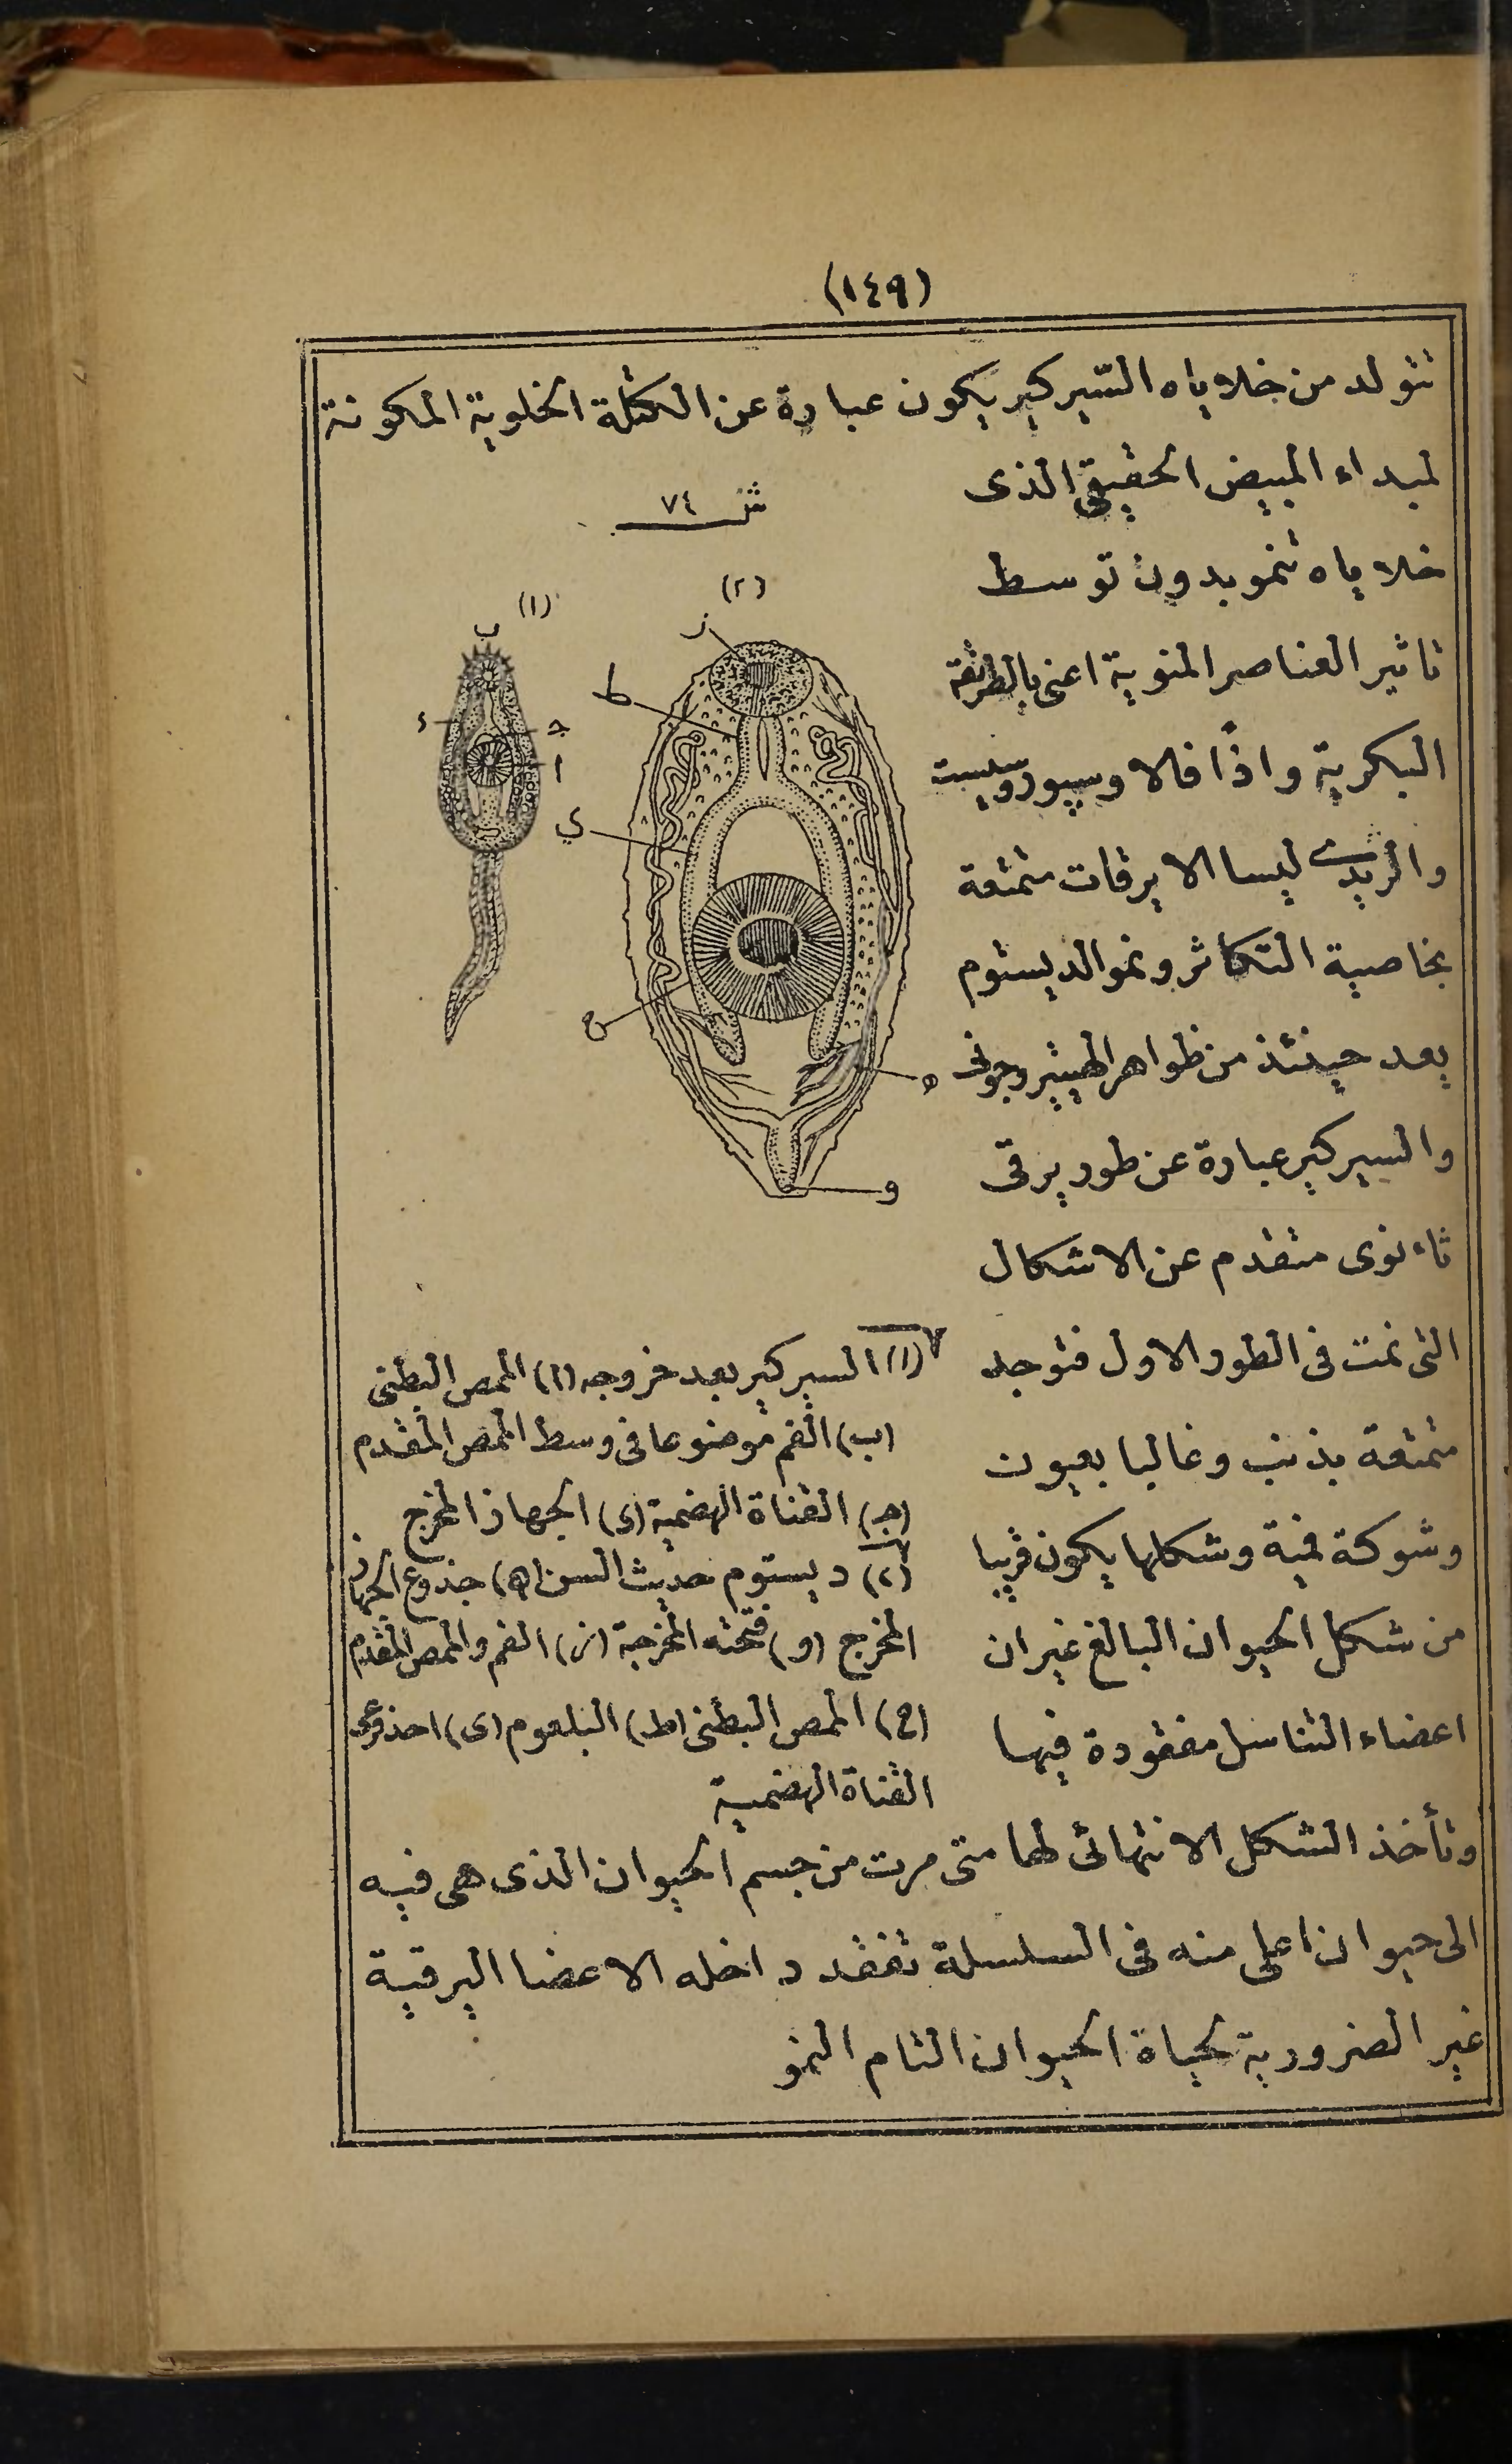 (١٤٩)
تتولد من خلاياه السيركير يكون عبارة عن الكتلة الخلوية المكونة
لمبداء المبيض الحقيقى الذى
خلاياه تنمو بدون توسط
تاثير العناصر المنوية اعنى بالطريقة
البكرية واذًا فالاوسپوروسيست
والريدى ليسا الا يرقات متمتعة
بخاصية التكاثر ونمو الديستوم
يعد حينئذ من ظواهر الهيتيروجونى
والسيركير عبارة عن طور يرقى
ثاءنوى متقدم عن الاشكال
التى نمت فى الطور الاول فتوجد
متمتعة بذنب وغالبا بعيون
وشوكة فمية وشكلها يكون قريبا
من شكل الحيوان البالغ غير ان
اعضاء التناسل مفقودة فيها
شـ ٧٤
(١)
(٢)
ب
د
جـ
ا
ز
ط
ي
ح
ه
و
(١) السيركير بعد خروجه (ا) الممص البطنى
(ب) الفم موضوعا فى وسط الممص المقدم
(جـ) القناة الهضمية (د) الجهاز المخرج
(٢) ديستوم حديث السن (ه) جذوع الجهاز
المخرج (و) فتحته المخرجية (ز) الفم والممص المقدم
(ح) الممص البطنى (ط) البلعوم (ى) احذوعى
القناة الهضمية
وتأخذ الشكل الانتهائى لها متى مرت من جسم الحيوان الذى هى فيه
الى حيوان اعلى منه فى السلسلة تفقد داخله الاعضا اليرقية
غير الضرورية لحياة الحيوان التام النمو